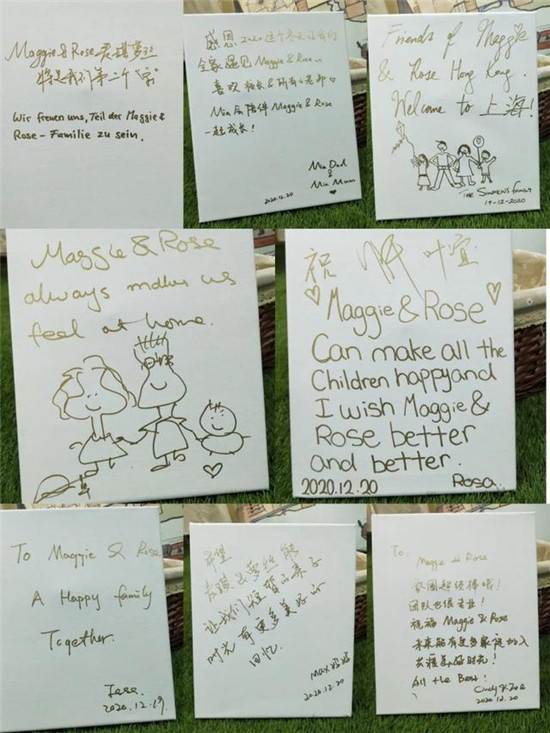 Maggie & Rose
将是我们第二个"家"
Wir freuen uns, Teil der Maggie &
Rose - Familie zu sein.
感恩2020这个冬天让我们
全家遇见Maggie & Rose
喜欢 &所有
Mia 陪伴 Maggie & Rose
一起成长!
Mia Dad
&
Mia Mum
2020.12.20
Friends of Maggie
& Rose Hong Kong.
Welcome to 上海!
THE FAMILY
19-12-2020
Maggie & Rose
always makes us
feel at home.
祝 叶萱
Maggie & Rose
Can make all the
Children happy and
I wish Maggie &
Rose better
and better.
2020.12.20 Rosa
To Maggie & Rose
A Happy family
Together.
2020.12.19
希望
能
让我们短暂的亲子
时光有更多美好的
回忆.
MAX妈妈
2020.12.20
To:
Maggie & Rose
家园超级棒哦!
团队也很专业!
祝福 Maggie & Rose
未来能有更多家庭加入
All the Best!
Cindy & Zoe
2020.12.20